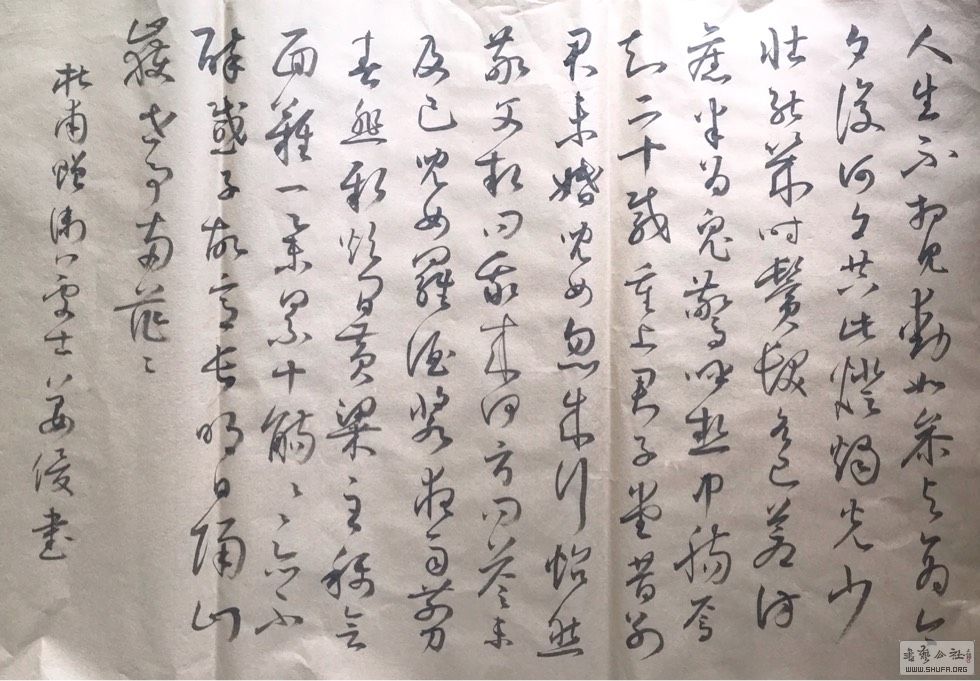 人生不相見動如參與商今
夕復何夕共此燈燭光少
壯能幾時鬢髮各已蒼訪
舊半為鬼驚呼熱中腸焉
知二十載重上君子堂昔別
君未婚兒女忽成行怡然
敬父執問我來何方問答未
及已兒女羅酒漿夜雨剪
春韭新炊間黃粱主稱會
面難一舉累十觴〻〻亦不
醉感子故意長明日隔山
嶽世事兩茫〻
杜甫贈衛八處士 姜俊書
書藝公社
WWW.SHUFA.ORG